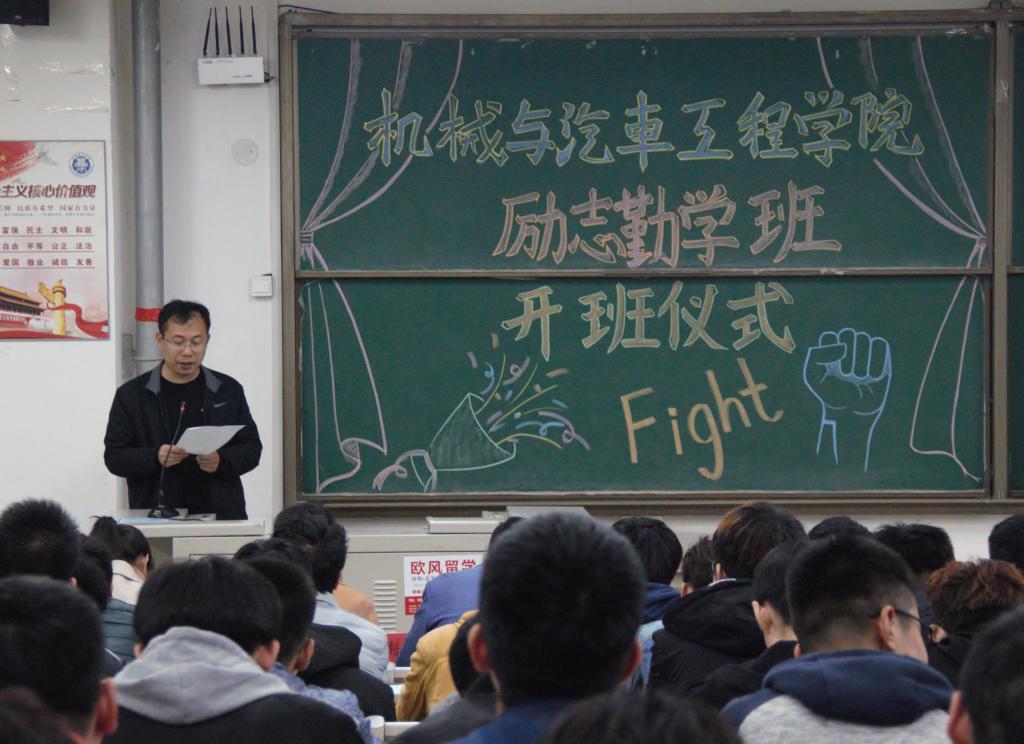 机械与汽車工程学院
励志勤学班
开班仪式
Fight
主义核心价值观
民族有希望 国家有力量
富强 民主 文明 和谐
自由 平等 公正 法治
爱国 敬业 诚信 友善
欧风留学